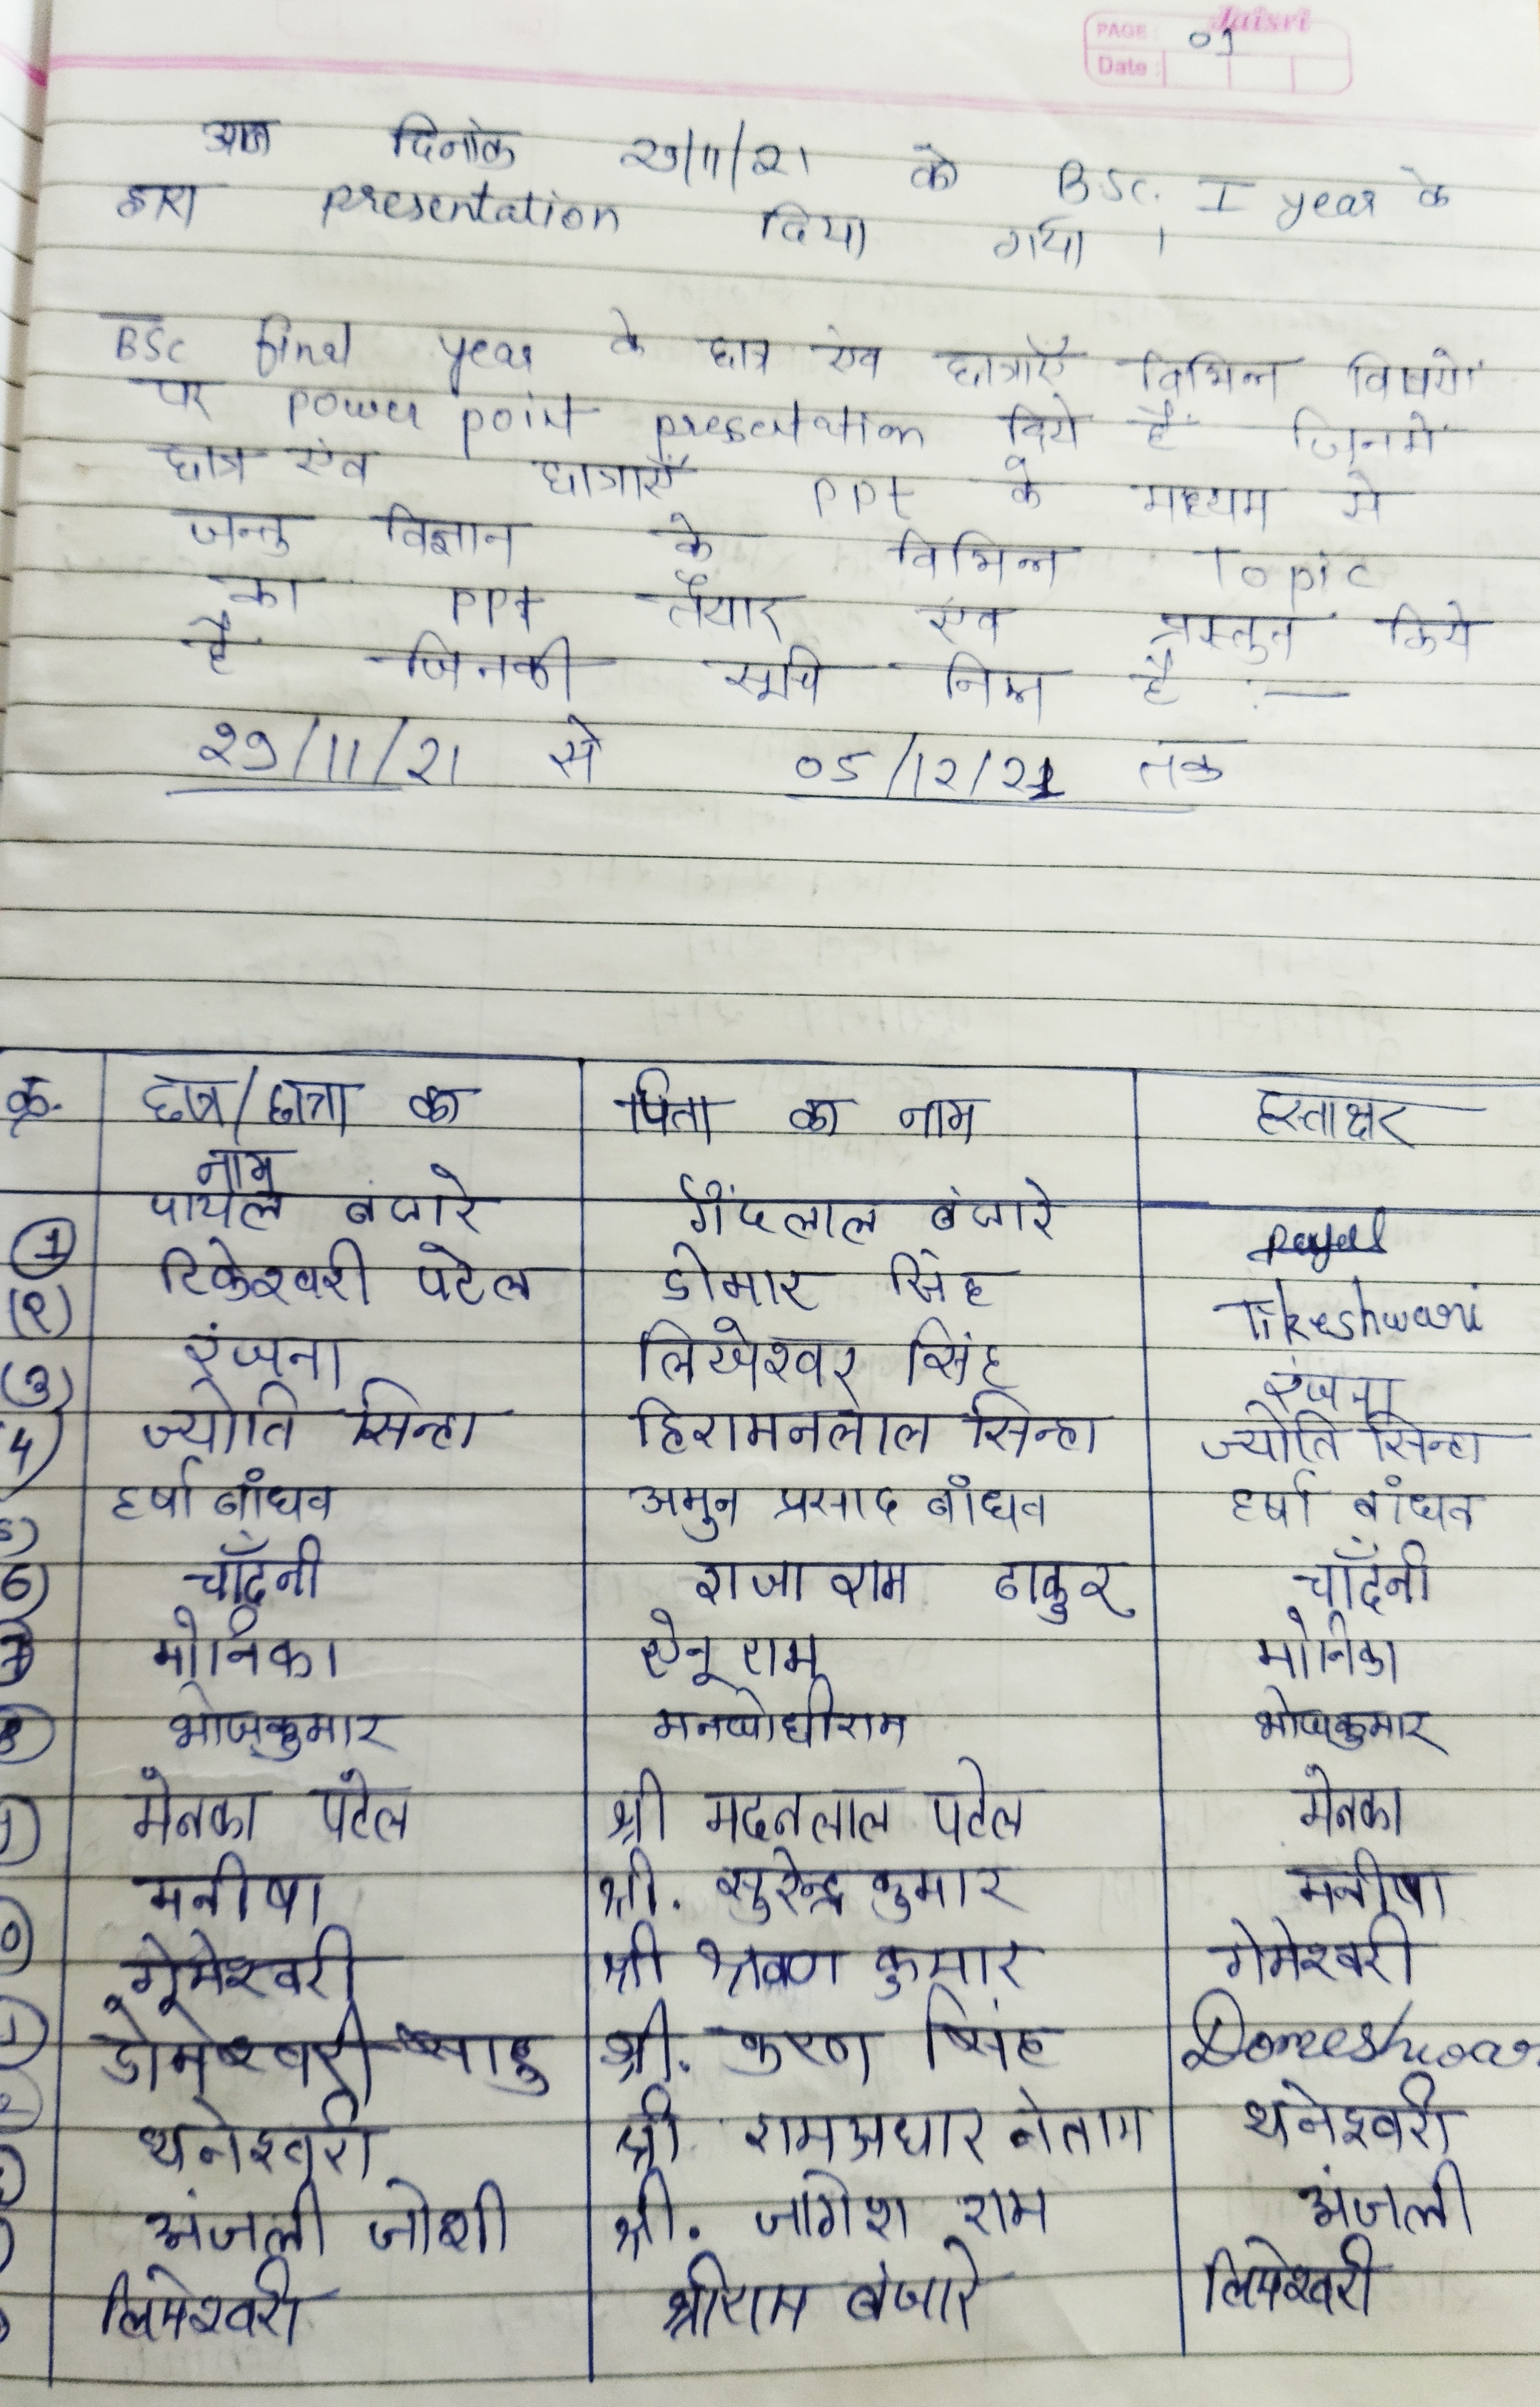 Jaisri
PAGE : 01
Date :
आज दिनांक 29/11/21 को BSc. I year के
द्वारा presentation दिया गया ।
BSc final year के छात्र एंव छात्राएँ विभिन्न विषयों
पर power point presentation दिये हैं जिनमें
छात्र एंव छात्राएँ ppt के माध्यम से
जन्तु विज्ञान के विभिन्न Topic
का ppt तैयार एंव प्रस्तुत किये
हैं जिनकी सूचि निम्न है :—
29/11/21 से 05/12/21 तक
क्र. छात्र/छात्रा का नाम पिता का नाम हस्ताक्षर
1 पायल बंजारे गेंदलाल बंजारे payal
(2) टिकेश्वरी पटेल डोमार सिंह Tikeshwari
(3) रंजना लिखेश्वर सिंह रंजना
4) ज्योति सिन्हा हिरामनलाल सिन्हा ज्योति सिन्हा
5) हर्षा बांधव प्रसाद बांधव हर्षा बांधव
6) चाँदनी राजा राम ठाकुर चाँदनी
7 मोनिका सेनू राम मोनिका
8 भोजकुमार भोजकुमार
मेनका पटेल श्री मदनलाल पटेल मेनका
मनीषा श्री. सुरेन्द्र कुमार मनीषा
गेमेश्वरी श्री श्रवण कुमार गेमेश्वरी
डोमेश्वरी साहु श्री. सिंह Domeshwar
थनेश्वरी श्री रामअधार नेताम थनेश्वरी
अंजली जोशी श्री. जागेश राम अंजली
लिमेश्वरी श्रीराम बंजारे लिमेश्वरी